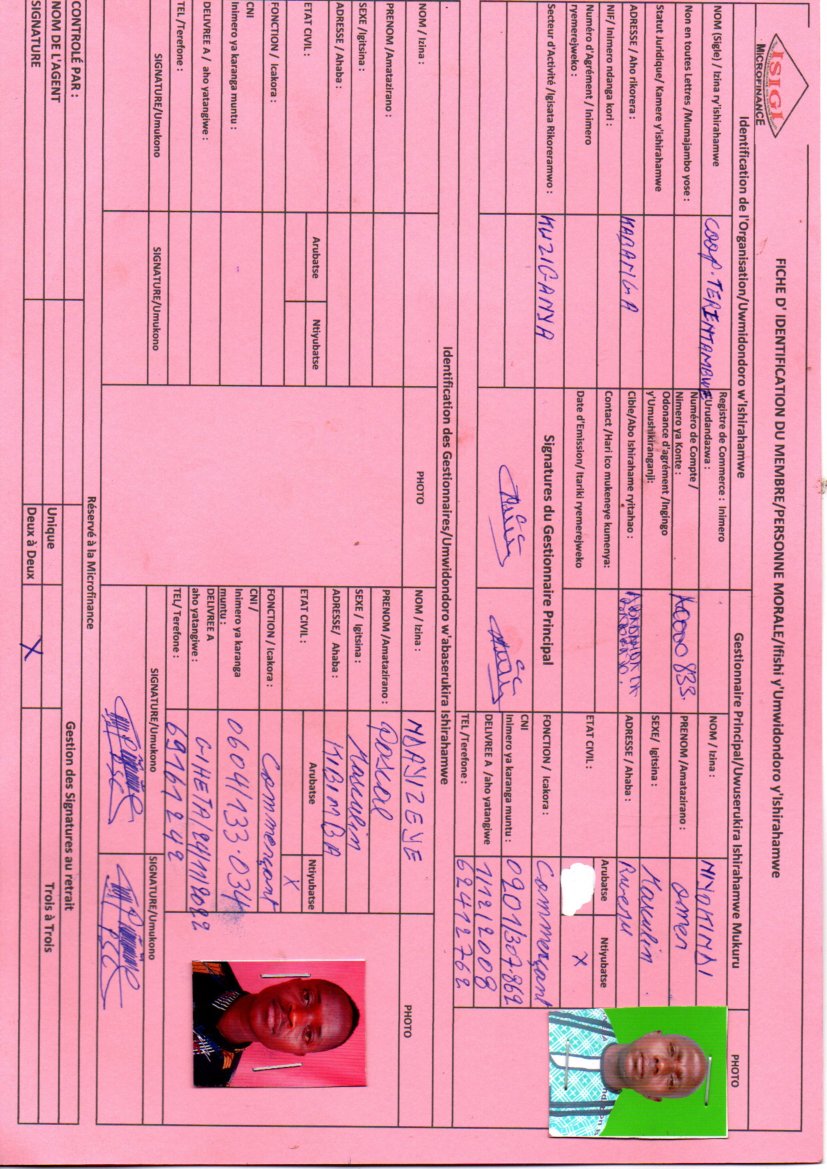 ISIGI
MICROFINANCE
FICHE D' IDENTIFICATION DU MEMBRE/PERSONNE MORALE/Ifishi y'Umwidondoro y'Ishirahamwe
Identification de l'Organisation/Uwmidondoro w'Ishirahamwe
Gestionnaire Principal/Uwuserukira Ishirahamwe Mukuru
NOM (Sigle) / Izina ry'ishirahamwe
COOP. TERINTAMBWE
Non en toutes Lettres /Mumajambo yose :
Statut Juridique/ Kamere y'ishirahamwe
ADRESSE / Aho rikorera :
KABANGA
NIF/ Inimero ndanga kori :
Numéro d'Agrément / Inimero
ryemerejweko :
Secteur d'Activité /Igisata Rikoreramwo :
KUZIGANYA
Registre de Commerce : Inimero
Urudandazwa :
Numéro de Compte /
Nimero ya Konte :
Odonance d'agrément /Ingingo
y'Umushikiranganji:
Cible/Abo Ishirahame ryitahao :
Contact /Hari ico mukeneye kumenya:
Date d'Emission/ Itariki ryemerejweko
Signatures du Gestionnaire Principal
NOM / Izina :
PRENOM /Amatazirano :
SEXE/ Igitsina :
Masculin
ADRESSE / Ahaba :
ETAT CIVIL :
Arubatse
Ntiyubatse
X
FONCTION / Icakora :
Commerçant
CNI
Inimero ya karanga muntu :
0201/307.862
DELIVREE A /aho yatangiwe
1/12/2008
TEL /Terefone :
62412762
PHOTO
Identification des Gestionnaires/Umwidondoro w'abaserukira Ishirahamwe
NOM / Izina :
PRENOM /Amatazirano :
SEXE /Igitsina :
ADRESSE / Ahaba :
ETAT CIVIL :
Arubatse
Ntiyubatse
FONCTION / Icakora :
CNI
Inimero ya karanga muntu :
DELIVREE A / aho yatangiwe :
TEL /Terefone :
SIGNATURE/Umukono
SIGNATURE/Umukono
PHOTO
NOM / Izina :
NDAYIZEYE
PRENOM /Amatazirano :
Pascal
SEXE / Igitsina :
Masculin
ADRESSE/ Ahaba :
KIBIMBA
ETAT CIVIL :
Arubatse
Ntiyubatse
X
FONCTION / Icakora :
Commerçant
CNI /
Inimero ya karanga
muntu :
0604/133.034
DELIVREE A
aho yatangiwe :
GIHETA/24/11/2022
TEL/ Terefone :
69161242
SIGNATURE/Umukono
SIGNATURE/Umukono
PHOTO
Réservé à la Microfinance
CONTROLÉ PAR :
NOM DE L'AGENT
SIGNATURE
Gestion des Signatures au retrait
Unique
Deux à Deux
X
Trois à Trois